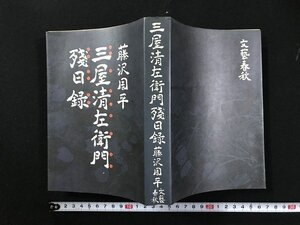 藤沢周平
三屋清左衛門
残日録
三屋清左衛門残日録 藤沢周平 文藝春秋
文藝春秋